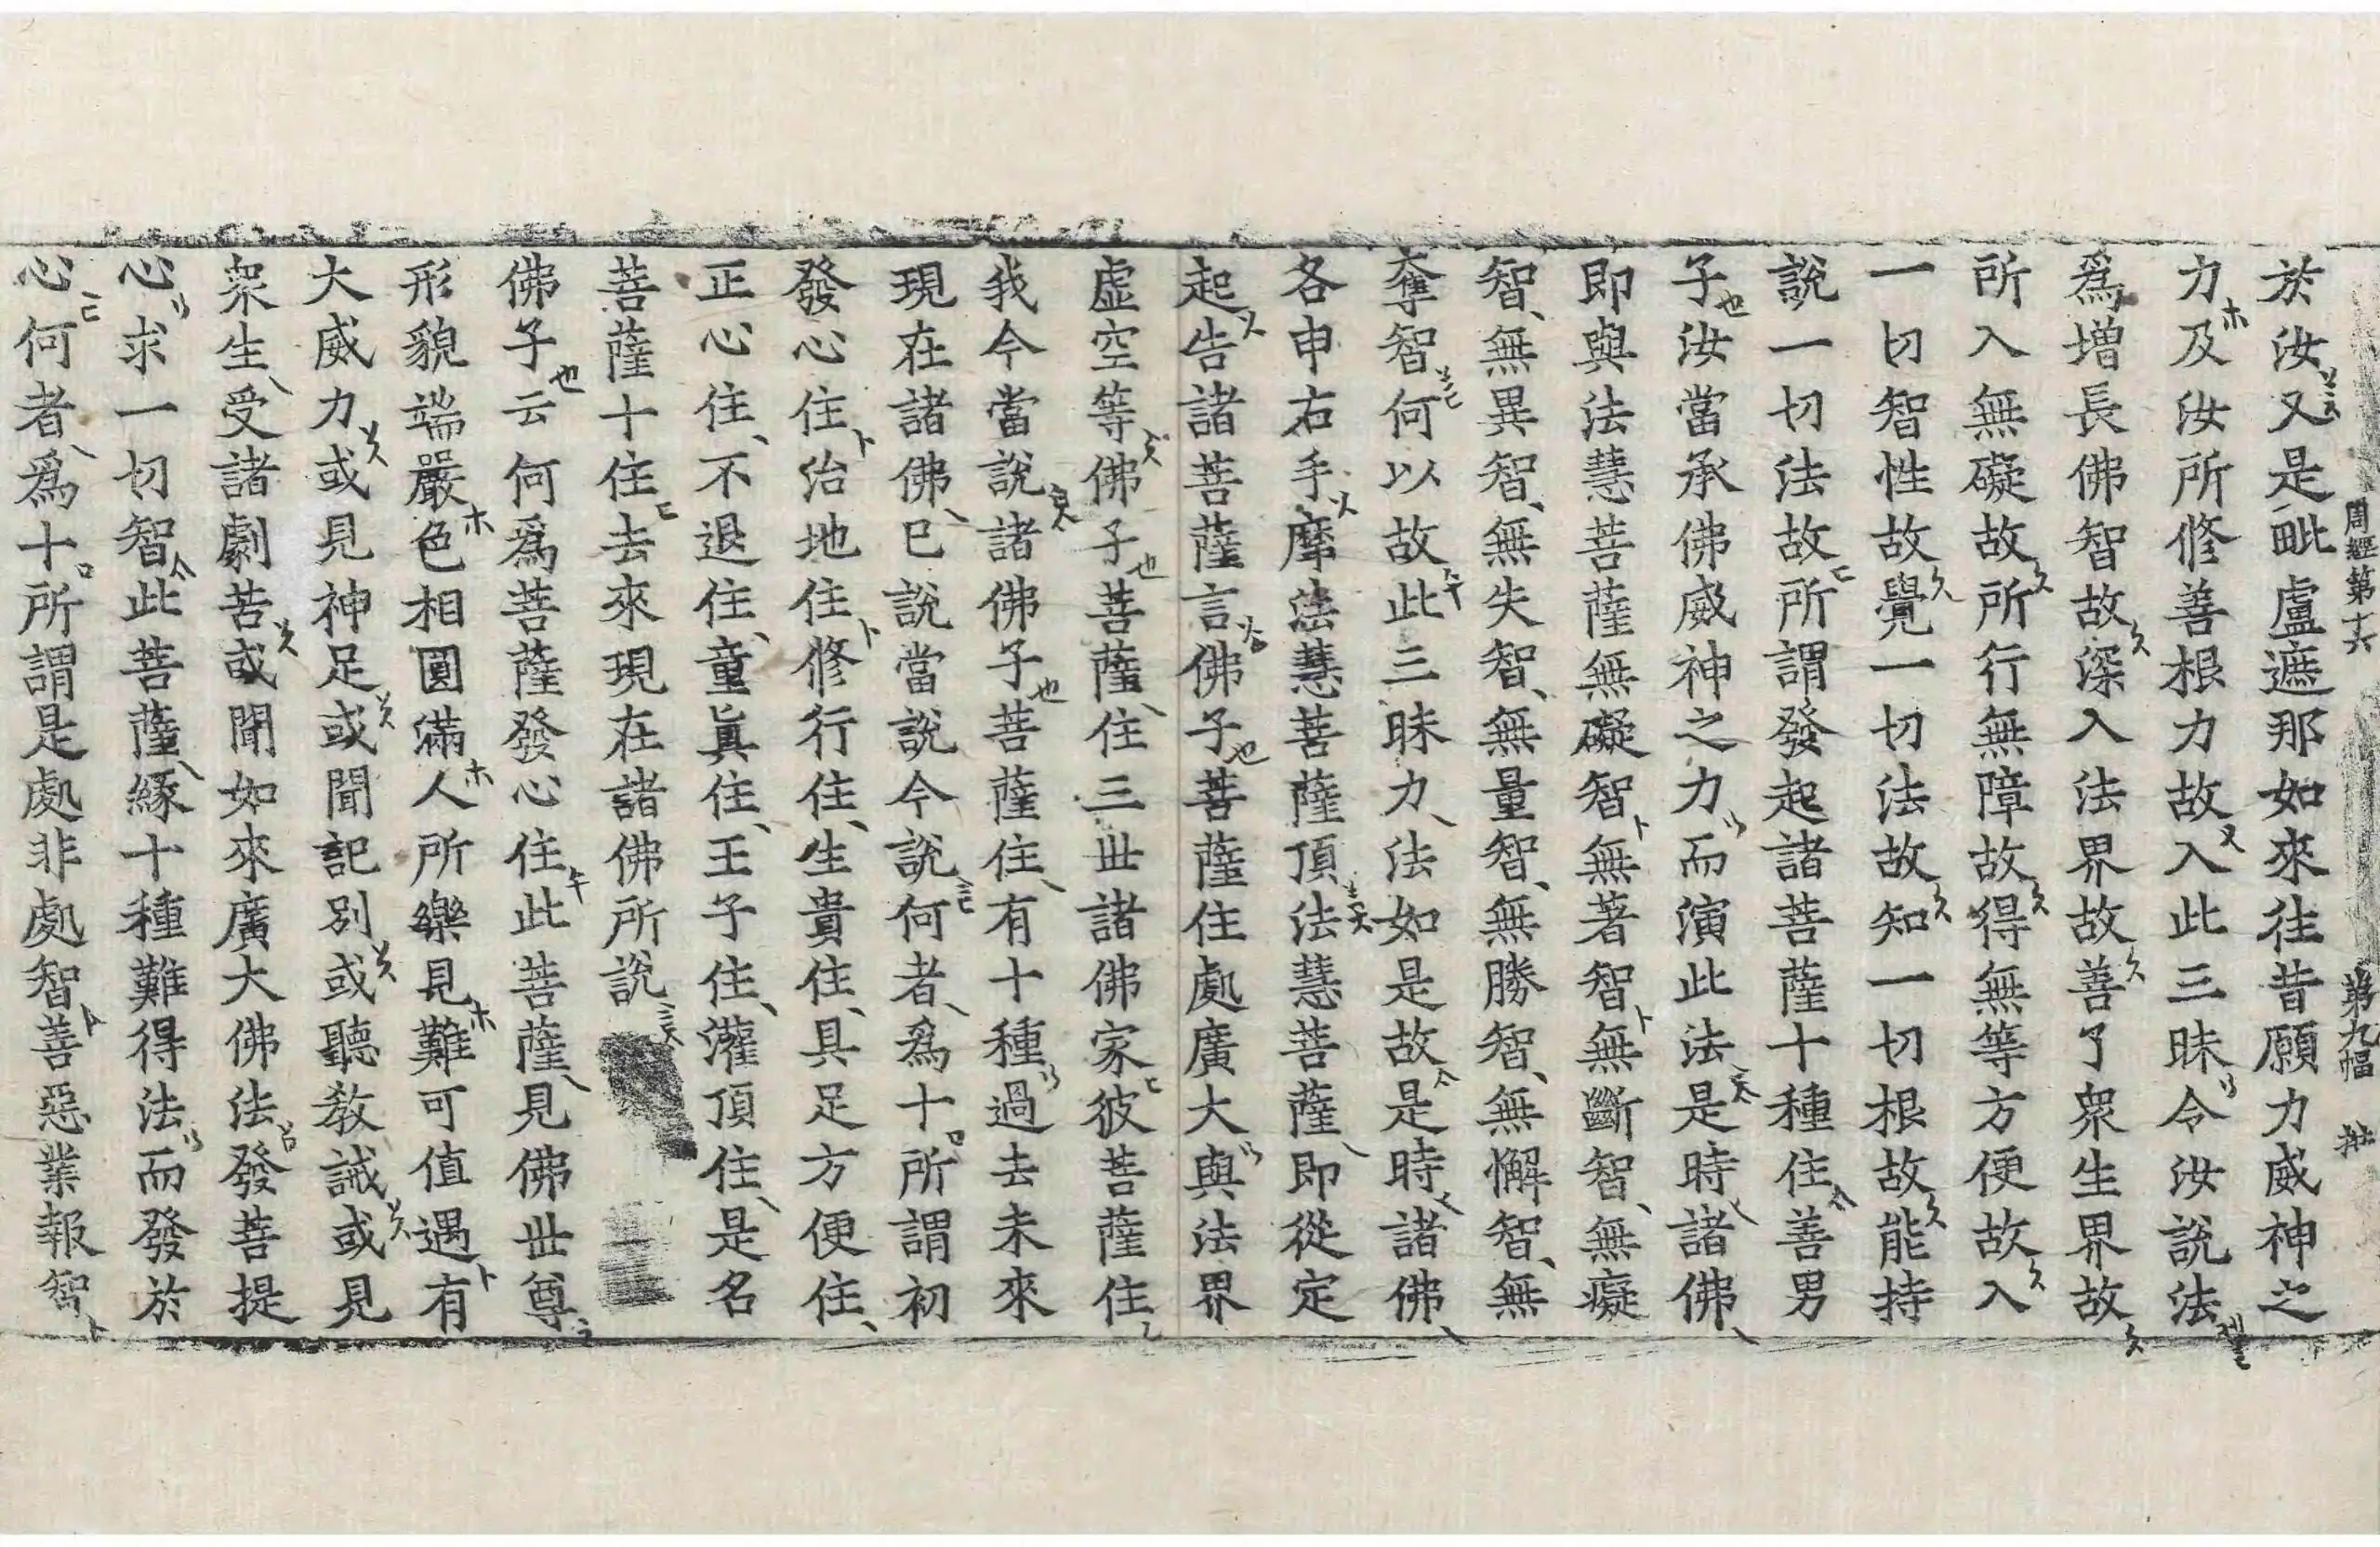 周經第十六　第九幅
於汝又是毗盧遮那如來往昔願力威神之
力及汝所修善根力故入此三昧令汝說法
爲增長佛智故深入法界故善了衆生界故
所入無礙故所行無障故得無等方便故入
一切智性故覺一切法故知一切根故能持
說一切法故所謂發起諸菩薩十種住善男
子汝當承佛威神之力而演此法是時諸佛
即與法慧菩薩無礙智無著智無斷智無癡
智無異智無失智無量智無勝智無懈智無
奪智何以故此三昧力法如是故是時諸佛
各申右手摩法慧菩薩頂法慧菩薩即從定
起告諸菩薩言佛子菩薩住處廣大與法界
虛空等佛子菩薩住三世諸佛家彼菩薩住
我今當說諸佛子菩薩住有十種過去未來
現在諸佛已說當說今說何者爲十所謂初
發心住治地住修行住生貴住具足方便住
正心住不退住童眞住王子住灌頂住是名
菩薩十住去來現在諸佛所說
佛子云何爲菩薩發心住此菩薩見佛世尊
形貌端嚴色相圓滿人所樂見難可值遇有
大威力或見神足或聞記別或聽教誡或見
衆生受諸劇苦或聞如來廣大佛法發菩提
心求一切智此菩薩緣十種難得法而發於
心何者爲十所謂是處非處智善惡業報智